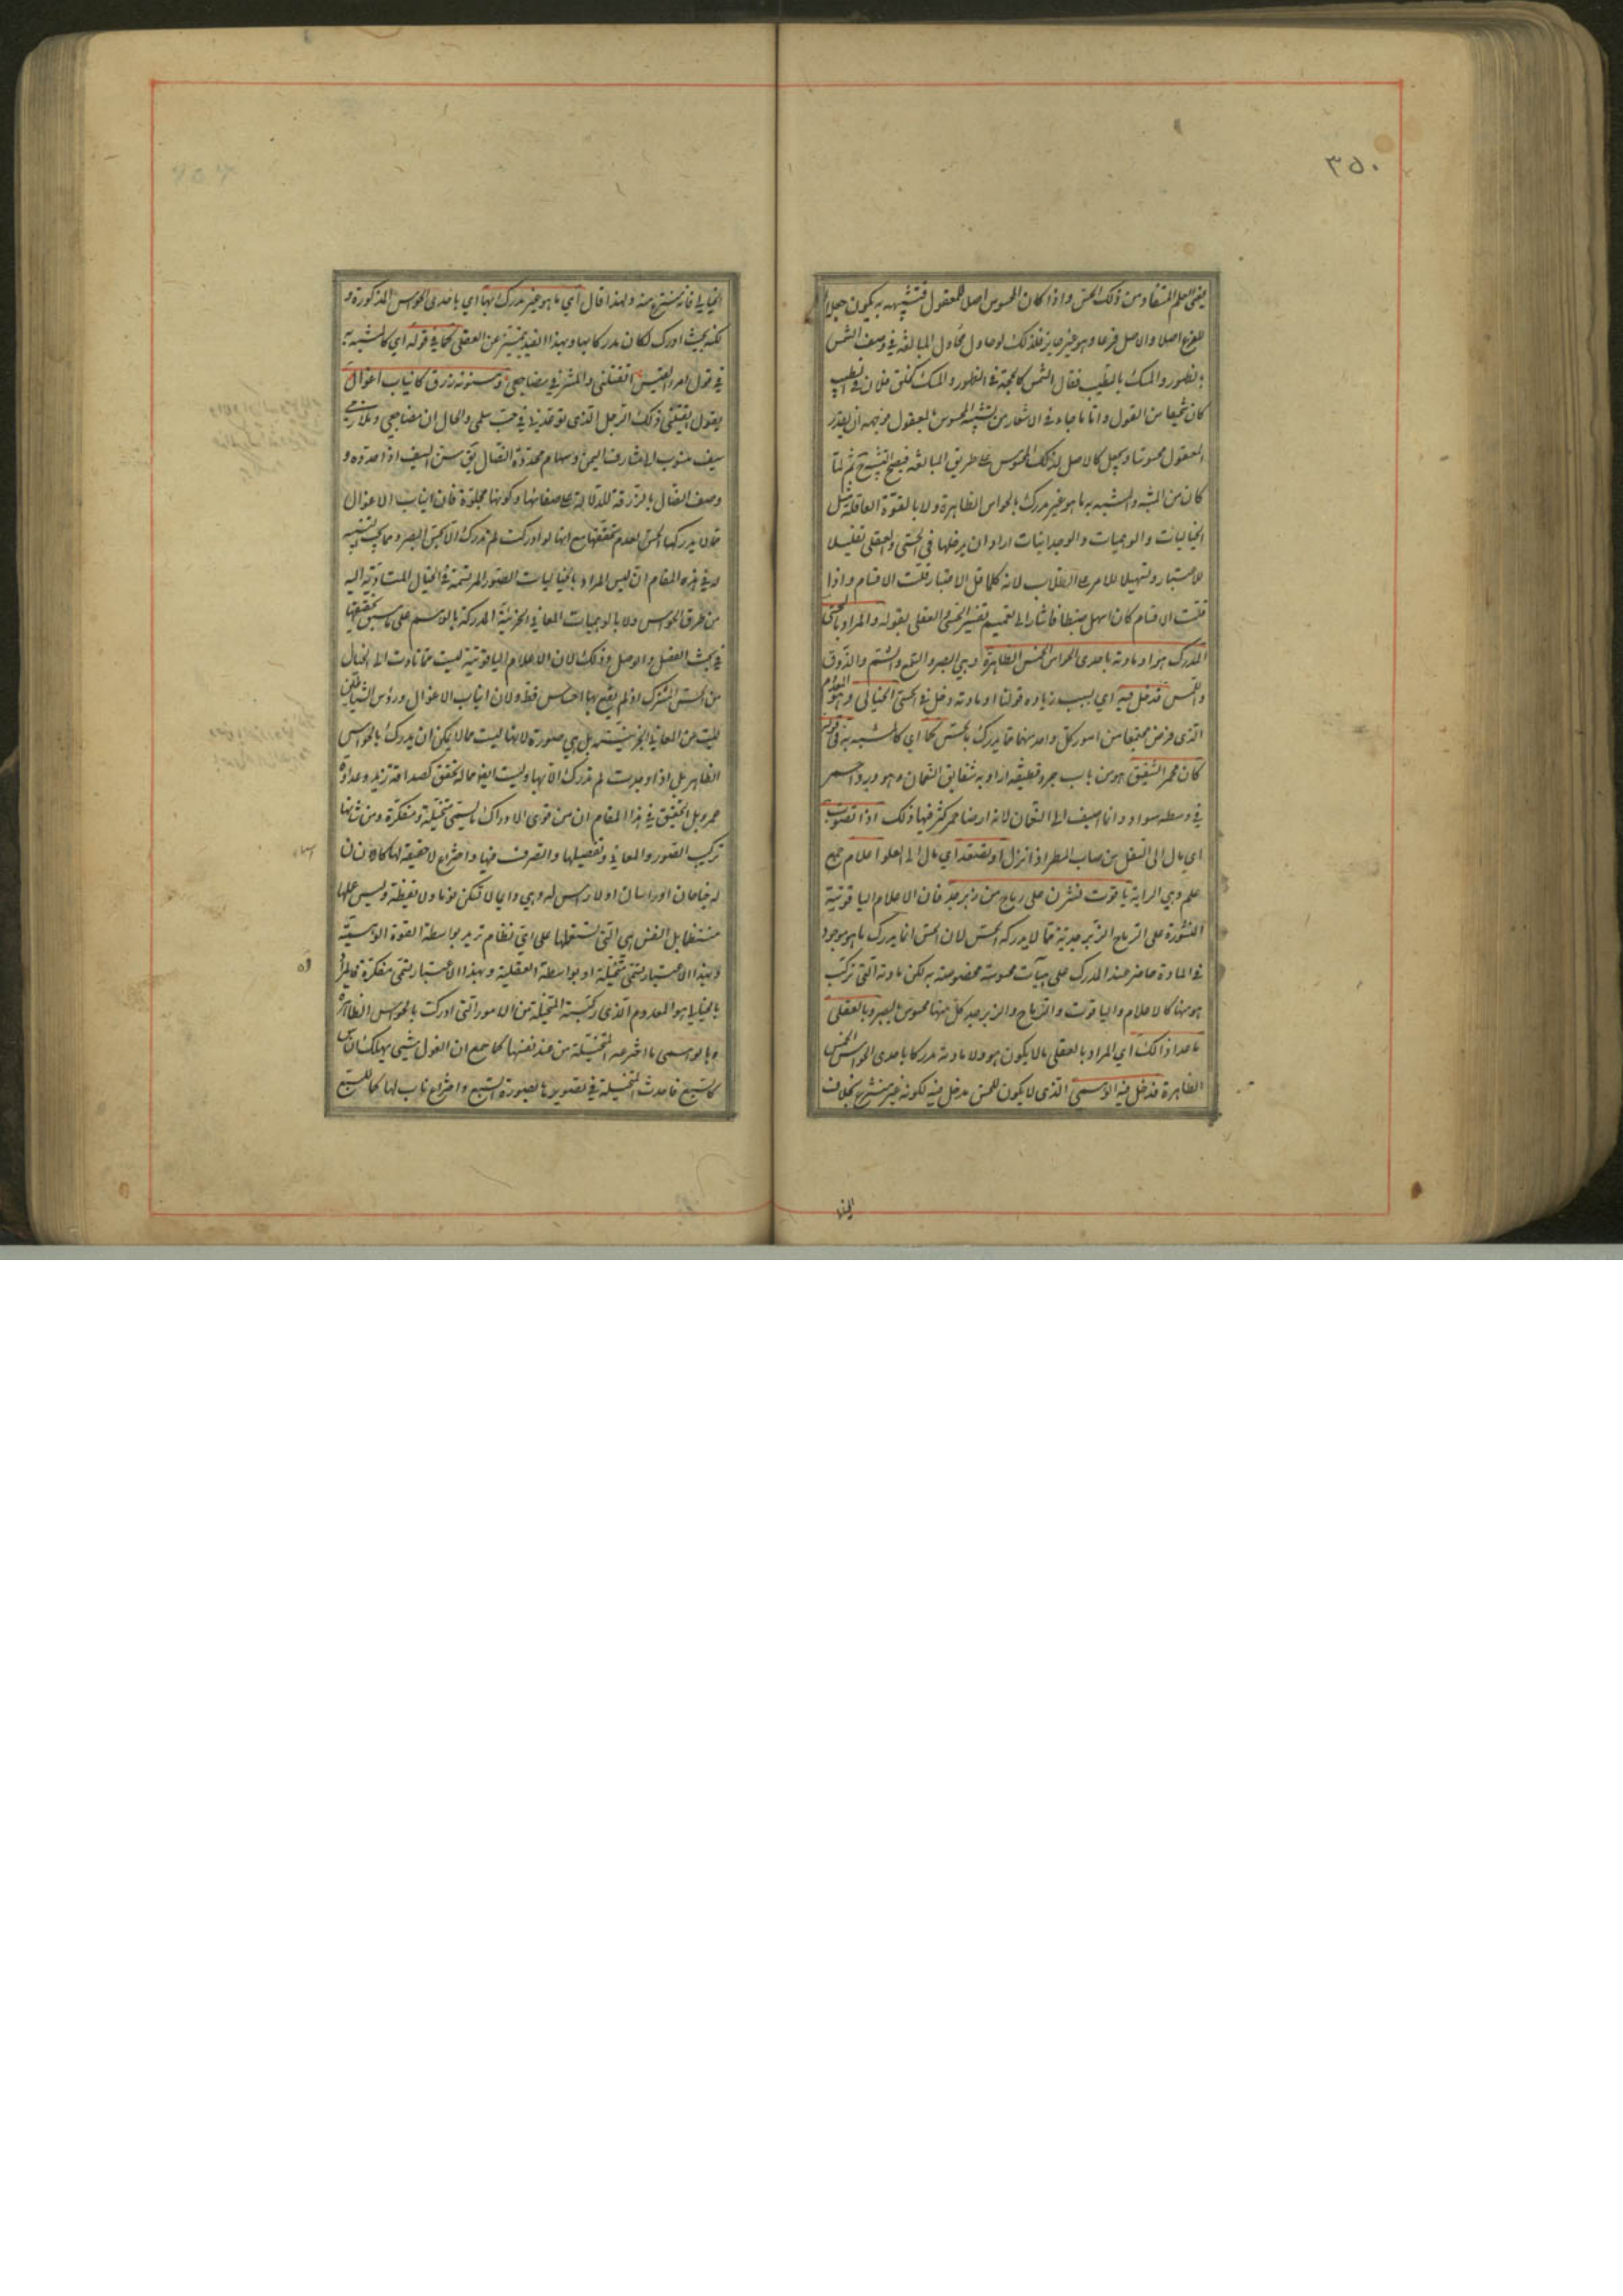 ٣٥٠
يعني العلم المستفاد من ذلك الحس واذا كان المحسوس اصلا للمعقول فتشبيهه به يكون جعلا
للفرع اصلا والاصل فرعا وهو غير جايز فلذلك لو حاول محاول المبالغة في وصف الشمس
بالظهور والمسك بالطيب فقال الشمس كالحجة في الظهور والمسك كخلق فلان في الطيب
كان سخيفا من القول واما ما جاء في الاشعار من تشبيه المحسوس بالمعقول فوجهه ان يقدر
المعقول محسوسا ويجعل كالاصل لذلك المحسوس على طريق المبالغة فيصح التشبيه ح ثم لما
كان من المشبه والمشبه به ما هو غير مدرك بالحواس الظاهرة ولا بالقوة العاقلة مثل
الخياليات والوهميات والوجدانيات اراد ان يدخلها في الحسي والعقلي تقليلا
للاعتبار وتسهيلا للامر على الطلاب لانه كلما قل الاعتبار قلت الاقسام واذا
قلت الاقسام كان اسهل ضبطا فاشار الى تعميم تفسير الحسي والعقلي بقوله والمراد بالحسي
المدرك هو او مادته باحدى الحواس الخمس الظاهرة وهي البصر والسمع والشم والذوق
واللمس فدخل فيه اي بسبب زيادة قولنا او مادته دخل في الحسي الخيالي وهو المعدوم
الذي فرض مجتمعا من امور كل واحد منها مما يدرك بالحس كما اي كالمشبه به في قوله
كان محمر الشقيق هو من باب جرد قطيفة اراد به شقايق النعمان وهو ورد احمر
في وسطه سواد وانما اضيف الى النعمان لانه ارضا حمى كثر فيها ذلك اذا تصوب
اي مال الى السفل من صاب المطر اذا نزل او تصعد اي مال الى العلو اعلام جمع
علم وهي الراية ياقوت نشرن على رماح من زبرجد فان الاعلام الياقوتية
المنشورة على الرماح الزبرجدية مما لا يدركه الحس لان الحس انما يدرك ما هو موجود
في المادة حاضر عند المدرك على هيآت محسوسة مخصوصة به لكن مادته التي تركب
هو منها كالاعلام والياقوت والرماح والزبرجد كل منها محسوس بالبصر وبالعقلي
ما عدا ذلك اي المراد بالعقلي ما لا يكون هو ولا مادته مدركا باحدى الحواس الخمس
الظاهرة فدخل فيه الوهمي الذي لا يكون للحس مدخل فيه لكونه غير منتزع بخلاف
الخيالي فانه منتزع منه ولهذا قال اي ما هو غير مدرك بها اي باحدى الحواس المذكورة و
لكنه بحيث لو ادرك لكان مدركا بها وبهذا القيد يتميز عن العقلي كما في قوله اي كالمشبه به
في قول امرء القيس ايقتلني والمشرفي مضاجعي ومسنونة زرق كانياب اغوال
يقول ايقتلني ذلك الرجل الذي توعدني في حب سلمى والحال ان مضاجعي وملازمي
سيف منسوب الى مشارف اليمن وسهام محددة النصال يق سنن السيف اذا حدده و
وصف النصال بالزرقة للدلالة على صفائها وكونها مجلوة فان انياب الاغوال
مما لا يدركها الحس لعدم تحققها مع انها لو ادركت لم تدرك الا بحس البصر ومما يجب التنبيه
له في هذه المقام ان ليس المراد بالخياليات الصور المرتسمة في الخيال المتادية اليه
من طرق الحواس ولا بالوهميات المعاني الجزئية المدركة بالوهم على ما سبق تحقيقها
في بحث الفصل والوصل وذلك لان الاعلام الياقوتية ليست مما تادت الى الخيال
من الحس المشترك اذ لم يقع بها احساس قط ولان انياب الاغوال ورؤس الشياطين
ليست من المعاني الجزئية بل هي صور لانها ليست مما لا يمكن ان يدرك بالحواس
الظاهرة بل اذا وجدت لم تدرك الا بها وليست ايضا مما له تحقق كصداقة زيد وعداوة
عمرو بل التحقيق في هذا المقام ان من قوى الادراك ما يسمى متخيلة ومفكرة ومن شانها
تركيب الصور والمعاني وتفصيلها والتصرف فيها واختراع اشياء لا حقيقة لها كانسان
له جناحان او راسان او لا راس له وهي دايما لا تسكن نوما ولا يقظة وليس عملها
منتظما بل النفس هي التي تستعملها على اي نظام تريد بواسطة القوة الوهمية
وبهذا الاعتبار تسمى متخيلة او بواسطة العقلية وبهذا الاعتبار تسمى مفكرة فالمراد
بالخيالي هو المعدوم الذي ركبته المتخيلة من الامور التي ادركت بالحواس الظاهرة
وبالوهمي ما اخترعه المتخيلة من عند نفسها كما سمع ان الغول شيئ يهلك الناس
كالسبع فاخذت المتخيلة في تصويرها بصورة السبع واختراع ناب لها كما للسبع